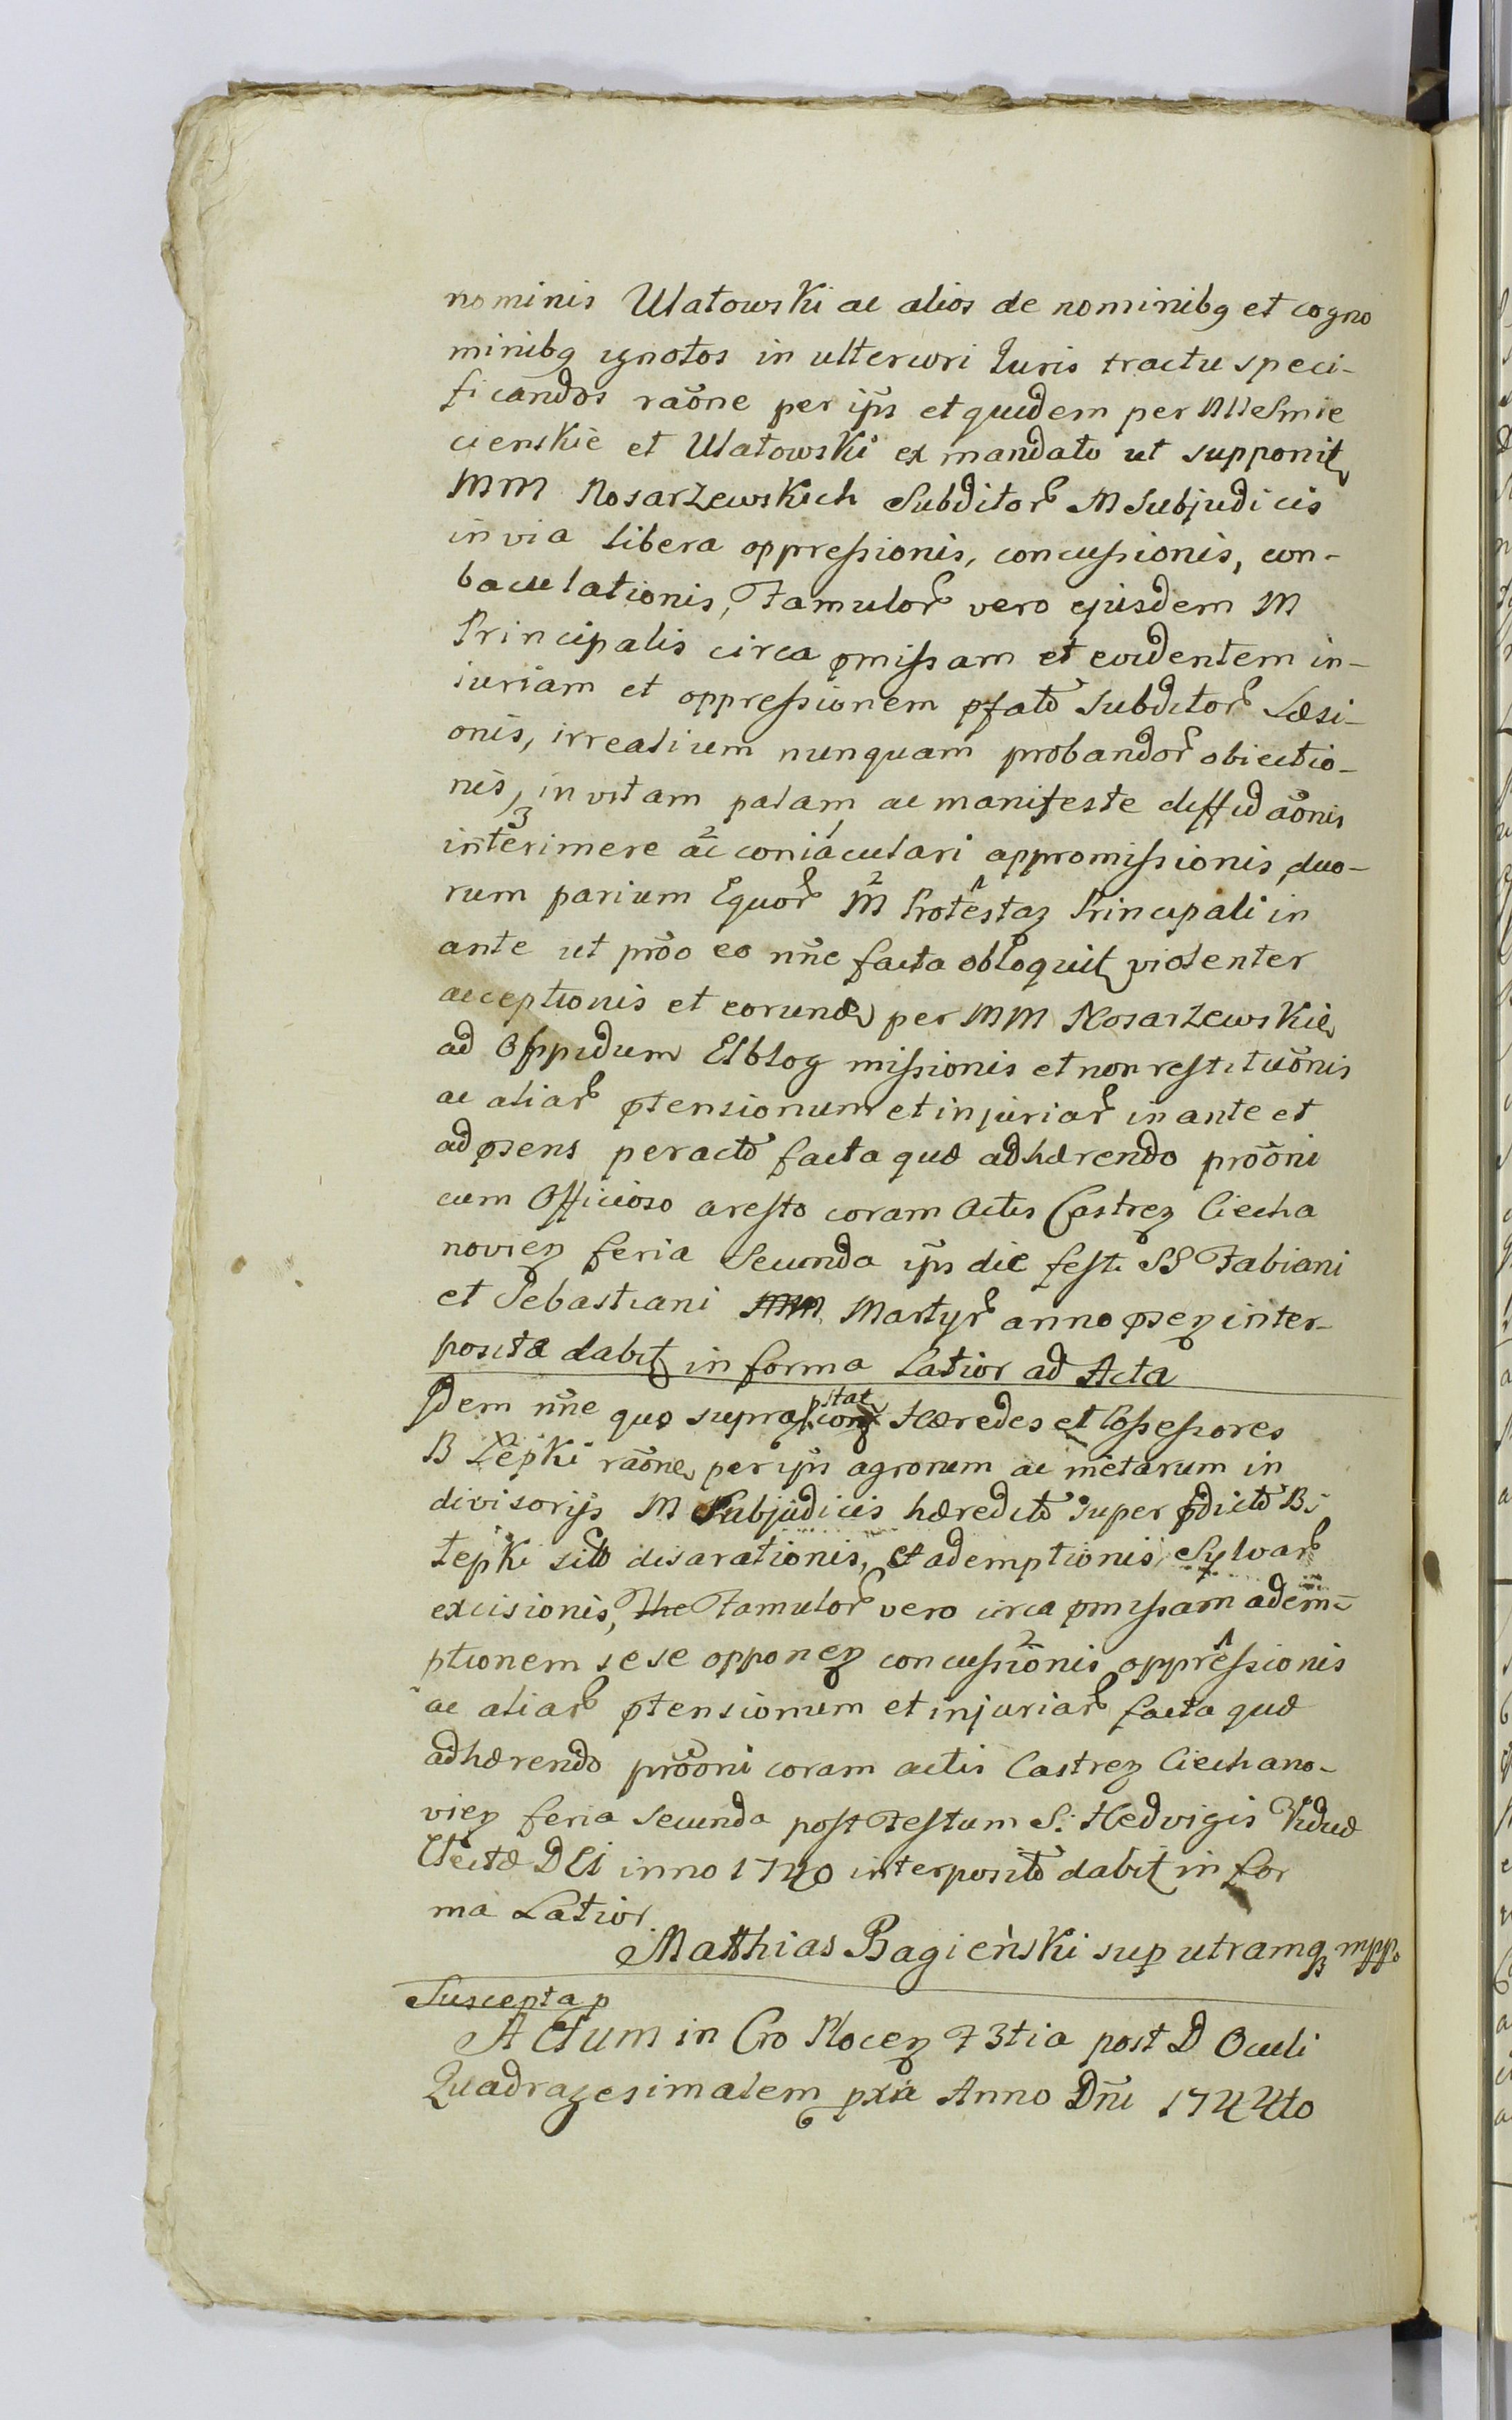 nominis Ulatowski ac alios de nominibꝫ et cogno
minibꝫ ignotos in ulteriori Iuris tractu speci-
ficandos raõne per ip̃s et quidem per
cienskie et Ulatowski ex mandato ut supponit̃
MM Nosarzewskich Subditor̃ M Subjudicis
in via libera oppressionis, concussionis, con-
baculationis, Famulor̃ vero ejusdem M
Principalis circa p̃missam et evidentem in-
iuriam et oppressionem p̃fatõ Subditor̃ Læsi-
onis, irrealium nunquam probandor̃ obiectio-
nis, in vitam palam ac manifeste diffidaõnis
interimere ac coniaculari appromissionis, duo-
rum parium Equor̃ M Protestaꝫ Principali in
ante ut prõo eo nñc facta obloquit̃ violenter
acceptionis et eorund̃ per MM Nosarzewskie
ad Oppidum Elblog missionis et non restituõnis
ac aliar̃ p̃tensionum et injuriar̃ in ante et
ad p̃sens peractõ facta quæ adhærendo prõoni
cum Officioso aresto coram Actis Castreꝫ Ciecha
novieꝫ feria Secunda ip̃s die festi SS Fabiani
et Sebastiani MM Martyr̃ anno p̃seꝫ inter-
posita dabit̃ in forma Latior ad Acta
Idem nñe quo supra p̃stat conꝫ Hæredes et Possessores
B Lepki raõne per ip̃s agrorum ac metarum in
divisorijs M Subjudicis hæreditõ super p̃dictõ B
Lepki sitõ disarationis, et ademptionis, Sylvar̃
excisionis, the Famulor̃ vero circa p̃missam adem=
ptionem sese opponeꝫ concussionis oppressionis
ac aliar̃ p̃tensionum et injuriar̃ facta quæ
adhærendo prõoni coram actis Castreꝫ Ciechano-
vieꝫ feria secunda post Festum S: Hedvigis Viduæ
Electæ DEI inno 1740 interpositõ dabit̃ in for
ma Latior
Matthias Bagieński sup utramqꝫ mpp.
Suscepta p
Actum in Cro Ploceꝫ F 3tia post D Oculi
Quadragesimalem pxa Anno Dñi 1744to